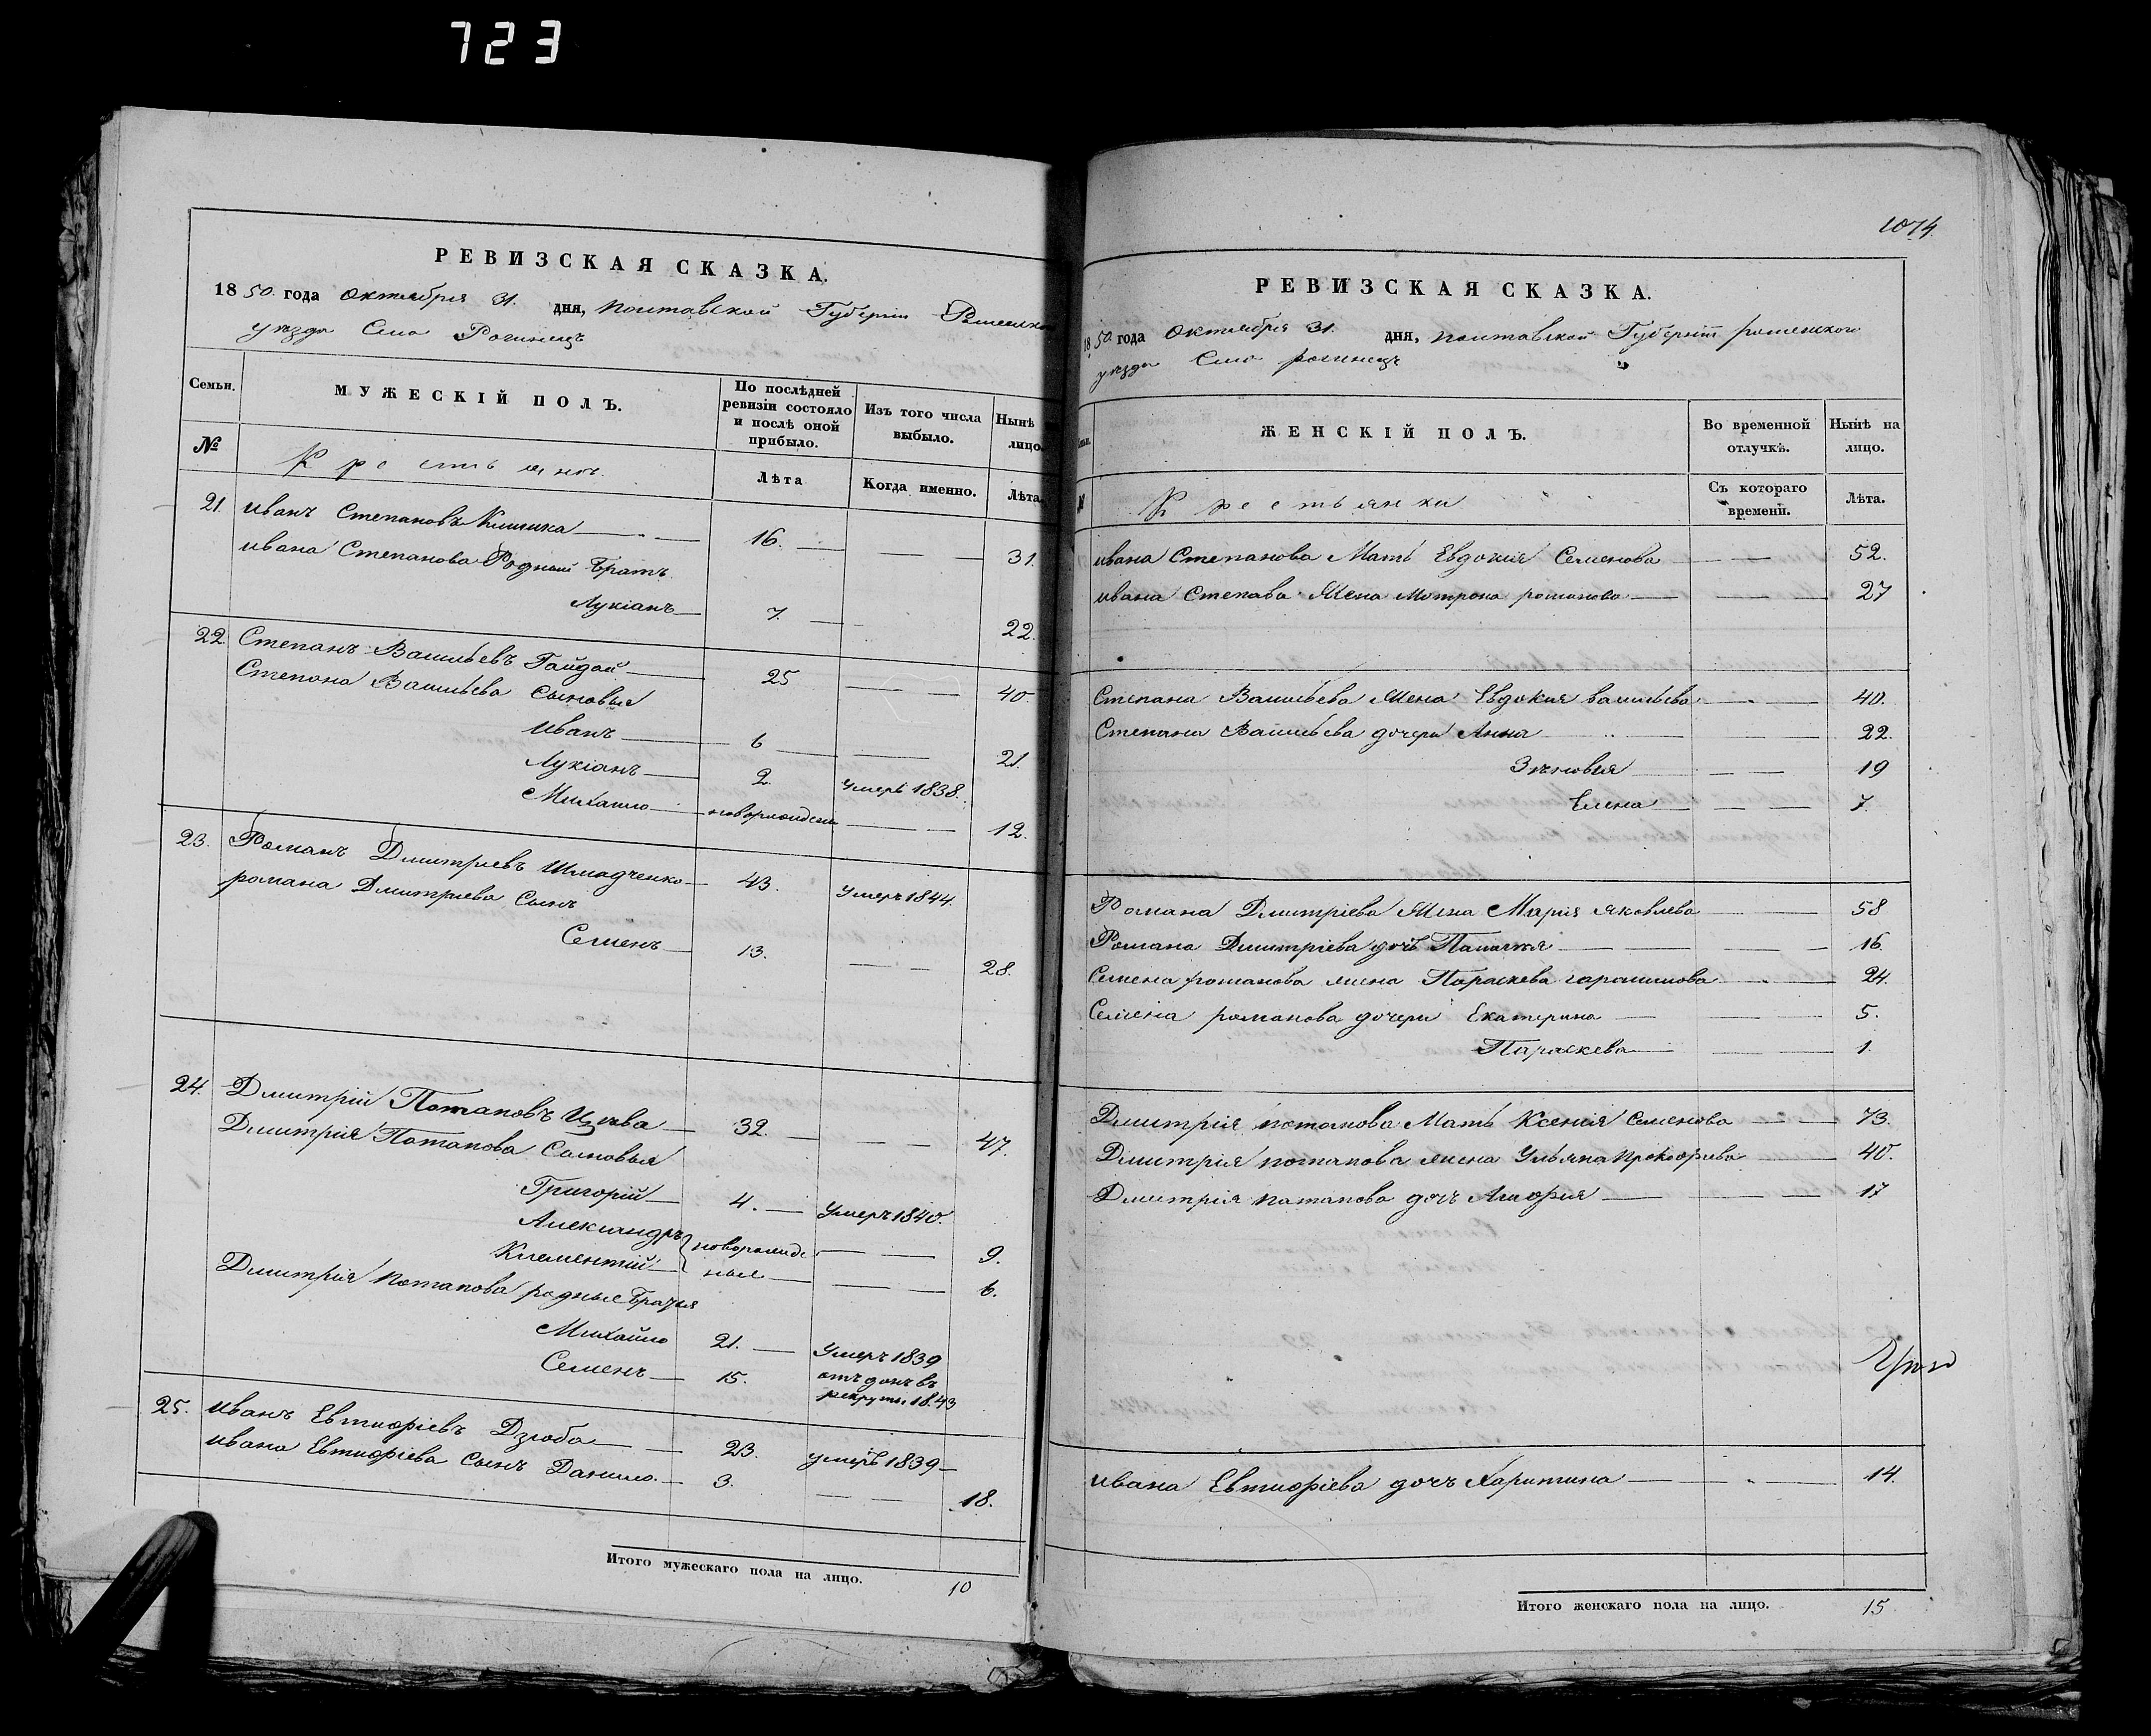 723
РЕВИЗСКАЯ СКАЗКА.
1850. года Октября 31. дня, Полтавской Губерніи
уезда Село Рогинецъ
Семьи.
МУЖЕСКІЙ ПОЛЪ.
По послѣдней ревизіи состояло и послѣ оной прибыло.
Изъ того числа выбыло.
Нынѣ лицо
№
Крестьяне
Лѣта
Когда именно.
Лѣта
21. Иванъ Степановъ 16. 31.
Ивана Степанова Родный Братъ
Лукіанъ 7. 22.
22. Степанъ Васильевъ Гайдай 25 40.
Степана Васильева Сыновья
Иванъ 6 21.
Лукіанъ 2. Умеръ 1838.
Михайло новорожденъ 12.
23. Романъ Дмитріевъ Шмадченко 43. Умеръ 1844.
романа Дмитріева Сынъ
Семенъ 13. 28.
24. Дмитрій Потаповъ Цѣва 32. 47.
Дмитрія Потапова Сыновья
Григорій 4. Умеръ 1840.
Александръ новорожде 9.
Климентій ные 6.
Дмитрія Потапова родные Братья
Михайло 21. Умеръ 1839
Семенъ 15. отъ данъ въ
рекруты 1843
25. Иванъ Евтифіевъ Дзюба 23. умеръ 1839
Ивана Евтифіева Сынъ Данило. 3. 18.
Итого мужескаго пола на лицо. 10
1074
РЕВИЗСКАЯ СКАЗКА.
1850 года Октября 31. дня, Полтавской Губерніи роменского
уезда Село рогинецъ
ЖЕНСКІЙ ПОЛЪ.
Во временной отлучкѣ.
Нынѣ на лицо.
Крестьянки
Съ котораго времени.
Лѣта.
Ивана Степанова Мать Евдокія Семенова 52.
Ивана Степава Жена Мотрона романова 27
Степана Васильева Жена Евдокия васильева 40.
Степана Васильева дочери Анна 22.
Зѣновья 19
Елена 7.
Романа Дмитріева Жена Марія яковлева 58
Романа Дмитріева дочь 16
Семена романова жена Параскева 24.
Семена романова дочери Екатерина 5.
Параскева 1.
Дмитрія потапова Мать Ксенія Семенова 73.
Дмитрія потапова жена Ульяна Прокофіева 40.
Дмитрія патапова дочъ 17
Ивана Евтифіева дочъ Харитина 14.
Итого женскаго пола на лицо. 15